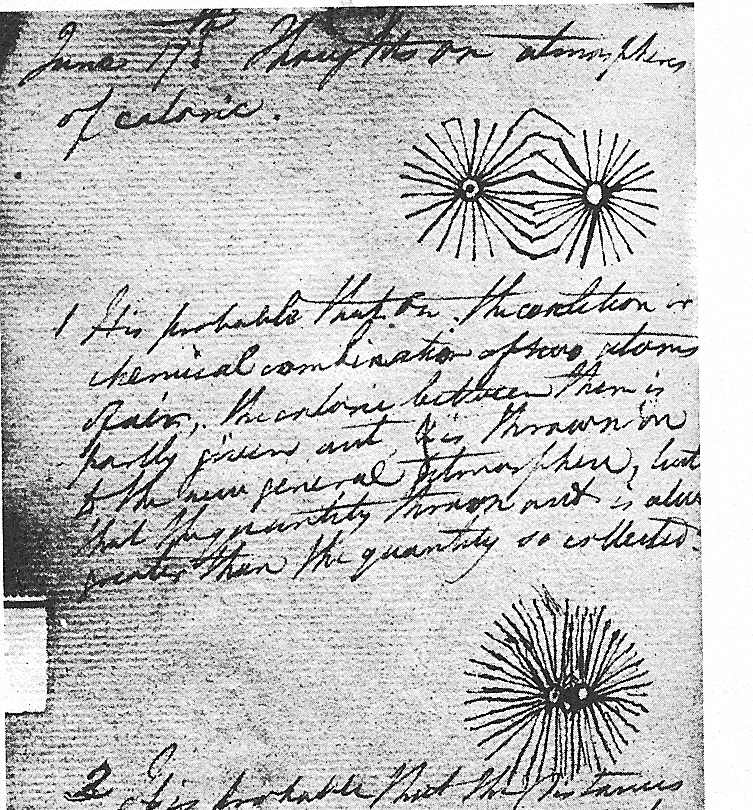 June 17th Thoughts on atmospheres
of caloric.
1 It is probable that on the condition or
chemical combination of two atoms
of air, the caloric between them is
partly given out, & is thrown on
to the new general atmosphere, but
that the quantity thrown out is alw
greater than the quantity so collected.
2 It is probable that the distances